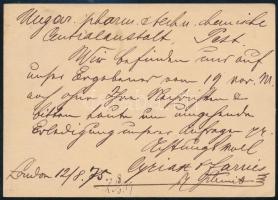 Ungar. pharm. techn. chemische
Centralanstalt, Pest.
Wir befinden uns auf
unser Ergebenes vom 19 nov. 
auch ohne Ihre Nachrichten &
bitten heute um umgehende
Erledigung unserer Anfrage
Achtungsvoll
London 12/8. 75.